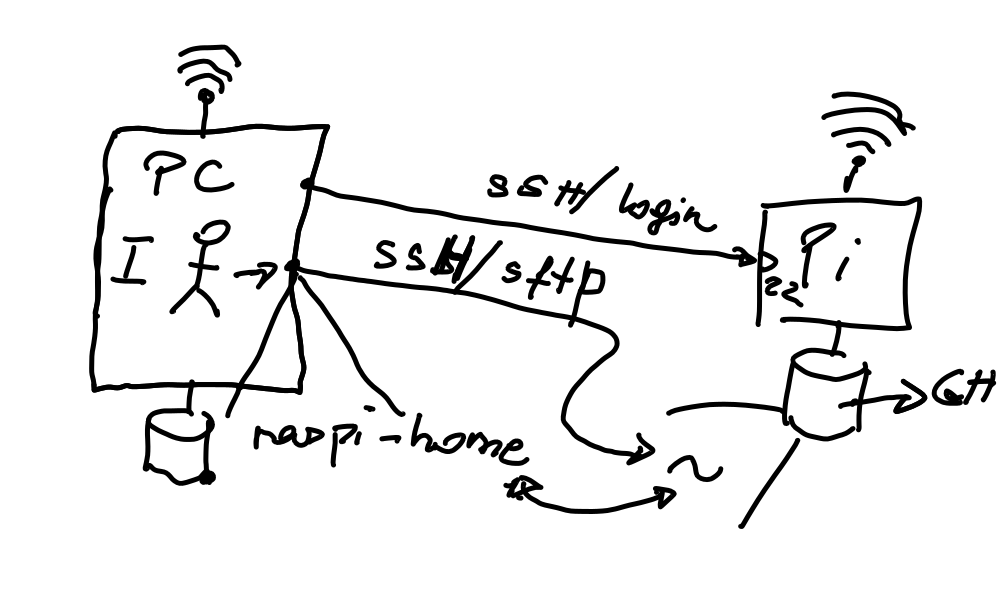 PC
ssH/login
Pi
I
ssH/sftp
22
GH
raspi-home
~